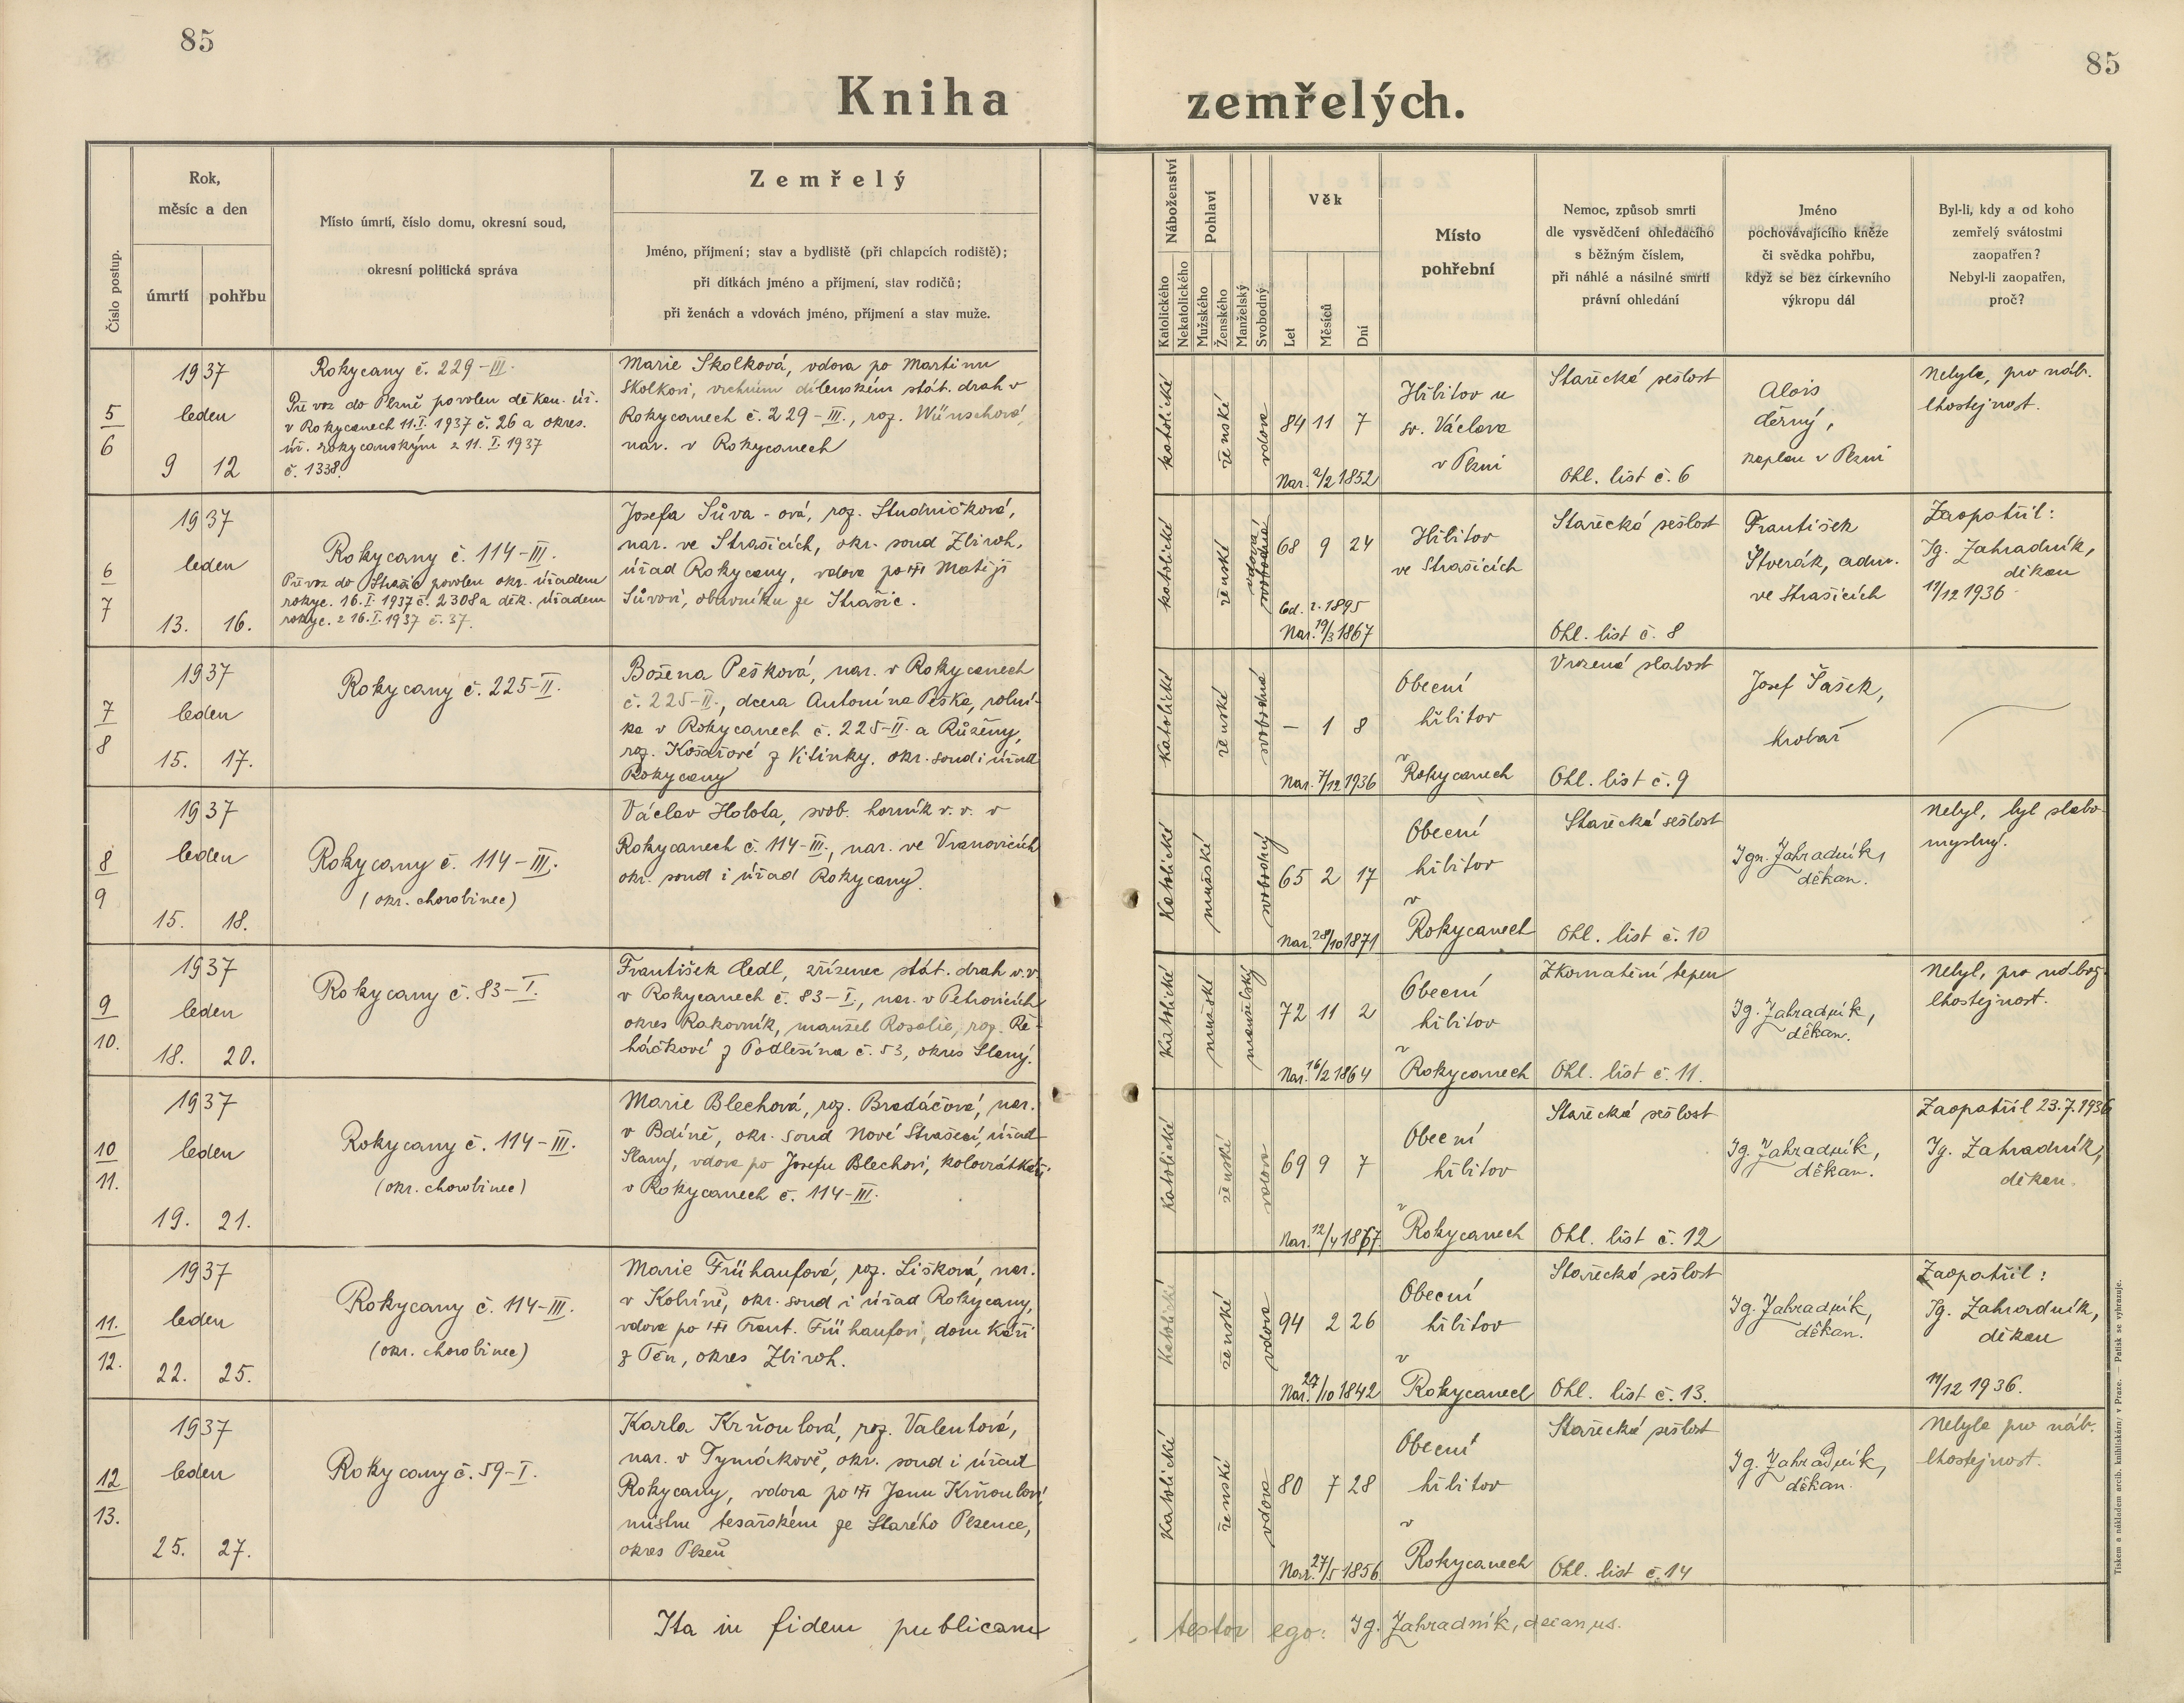 85
85
Kniha zemřelých.
Číslo postup.
Rok,
měsíc a den
úmrtí
pohřbu
Místo úmrtí, číslo domu, okresní soud,
okresní politická správa
Zemřelý
Jméno, příjmení; stav a bydliště (při chlapcích rodiště);
při dítkách jméno a příjmení, stav rodičů;
při ženách a vdovách jméno, příjmení a stav muže.
Náboženství
Katolického
Nekatolického
Pohlaví
Mužského
Ženského
Manželský
Svobodný
Věk
Let
Měsíců
Dní
Místo
pohřební
Nemoc, způsob smrti
dle vysvědčení ohledacího
s běžným číslem,
při náhlé a násilné smrti
právní ohledání
Jméno
pochovávajícího kněze
či svědka pohřbu,
když se bez církevního
výkropu dál
Byl-li, kdy a od koho
zemřelý svátostmi
zaopatřen?
Nebyl-li zaopatřen,
proč?
5
6
1937
leden
9 12
Rokycany č. 229-III.
Převoz do Plzně povolen děkan. úř.
v Rokycanech 11.I.1937 č. 26 a okres.
úř. rokycanským z 11. I. 1937
č. 1338.
Marie Skolková, vdova po Martinu
Skolkovi, vrchním dílenském stát. drah v
Rokycanech č. 229-III., roz. Wünschová,
nar. v Rokycanech
katolické
ženské
vdova
84 11 7
Nar. 2/2 1852
Hřbitov u
sv. Václava
v Plzni
Stařecká sešlost
Ohl. list č. 6
Alois
kaplan v Plzni
Nebyla, pro náb.
lhostejnost.
6
7
1937
leden
13. 16.
Rokycany č. 114-III.
Převoz do Strašic povolen okr. úřadem
rokyc. 16.I.1937 č. 2308 a děk. úřadem
rokyc. z 16.I.1937 č. 37.
Josefa Sůva-ová, roz. Studničková,
nar. ve Strašicích, okr. soud Zbiroh,
úřad Rokycany, vdova po Matěji
Sůvovi, obuvníku ze Strašic.
katolické
ženské
vdova
svobodná
68 9 24
Od. r. 1895
Nar. 19/3 1867
Hřbitov
ve Strašicích
Stařecká sešlost
Ohl. list č. 8
František
Štverák, adm.
ve Strašicích
Zaopatřil:
Ig. Zahradník,
děkan
11/12 1936
7
8
1937
leden
15. 17.
Rokycany č. 225-II.
Božena Pešková, nar. v Rokycanech
č. 225-II., dcera Antonína Peška, rolní-
ka v Rokycanech č. 225-II. a Růženy,
roz. Košařové z Kitínky, okr. soud i úřad
Rokycany
Katolické
ženské
svobodná
— 1 8
Nar. 7/12 1936
Obecní
hřbitov
v
Rokycanech
Vrozená slabost
Ohl. list č. 9
Josef Šašek,
hrobař
8
9
1937
leden
15. 18.
Rokycany č. 114-III.
(okr. chorobinec)
Václav Holota, svob. horník v. v. v
Rokycanech č. 114-III., nar. ve Vranovicích
okr. soud i úřad Rokycany.
Katolické
mužské
svobodný
65 2 17
Nar. 28/10 1871
Obecní
hřbitov
v
Rokycanech
Stařecká sešlost
Ohl. list č. 10
Ign. Zahradník,
děkan.
Nebyl, byl slabo-
myslný.
9
10.
1937
leden
18. 20.
Rokycany č. 83-I.
František Cedl, zřízenec stát. drah v.v.
v Rokycanech č. 83-I., nar. v Petrovicích
okres Rakovník, manžel Rosalie, roz. Ře-
háčkové z Podlešína č. 53, okres Slaný.
Katolické
mužské
manželský
72 11 2
Nar. 16/2 1864
Obecní
hřbitov
v
Rokycanech
Zkornatění tepen
Ohl. list č. 11.
Ig. Zahradník,
děkan.
Nebyl, pro nábož.
lhostejnost.
10
11.
1937
leden
19. 21.
Rokycany č. 114-III.
(okr. chorobinec)
Marie Blechová, roz. Bradáčová, nar.
v Bdíně, okr. soud Nové Strašecí, úřad
Slaný, vdova po Josefu Blechovi, kolovrátkáři
v Rokycanech č. 114-III.
Katolické
ženské
vdova
69 9 7
Nar. 12/4 1867.
Obecní
hřbitov
v
Rokycanech
Stařecká sešlost
Ohl. list č. 12
Ig. Zahradník,
děkan.
Zaopatřil 23.7.1936
Ig. Zahradník,
děkan.
11.
12.
1937
leden
22. 25.
Rokycany č. 114-III.
(okr. chorobinec)
Marie Frühaufová, roz. Lišková, nar.
v Kolvíně, okr. soud i úřad Rokycany,
vdova po Frant. Frühaufovi, domkáři
z Těn, okres Zbiroh.
Katolické
ženské
vdova
94 2 26
Nar. 27/10 1842
Obecní
hřbitov
v
Rokycanech
Stařecká sešlost
Ohl. list č. 13.
Ig. Zahradník,
děkan.
Zaopatřil:
Ig. Zahradník,
děkan
11/12 1936.
12
13.
1937
leden
25. 27.
Rokycany č. 59-I.
Karla Krňoulová, roz. Valentová,
nar. v Tymákově, okr. soud i úřad
Rokycany, vdova po Janu Krňoulovi,
mistru tesařském ze Starého Plzence,
okres Plzeň
Katolické
ženské
vdova
80 7 28
Nar. 27/5 1856.
Obecní
hřbitov
v
Rokycanech
Stařecká sešlost
Ohl. list č. 14
Ig. Zahradník,
děkan.
Nebyla pro náb.
lhostejnost.
Ita in fidem publicam testor ego: Ig. Zahradník, decanus.
Tiskem a nákladem arcib. knihtiskárny v Praze. — Patisk se vyhrazuje.